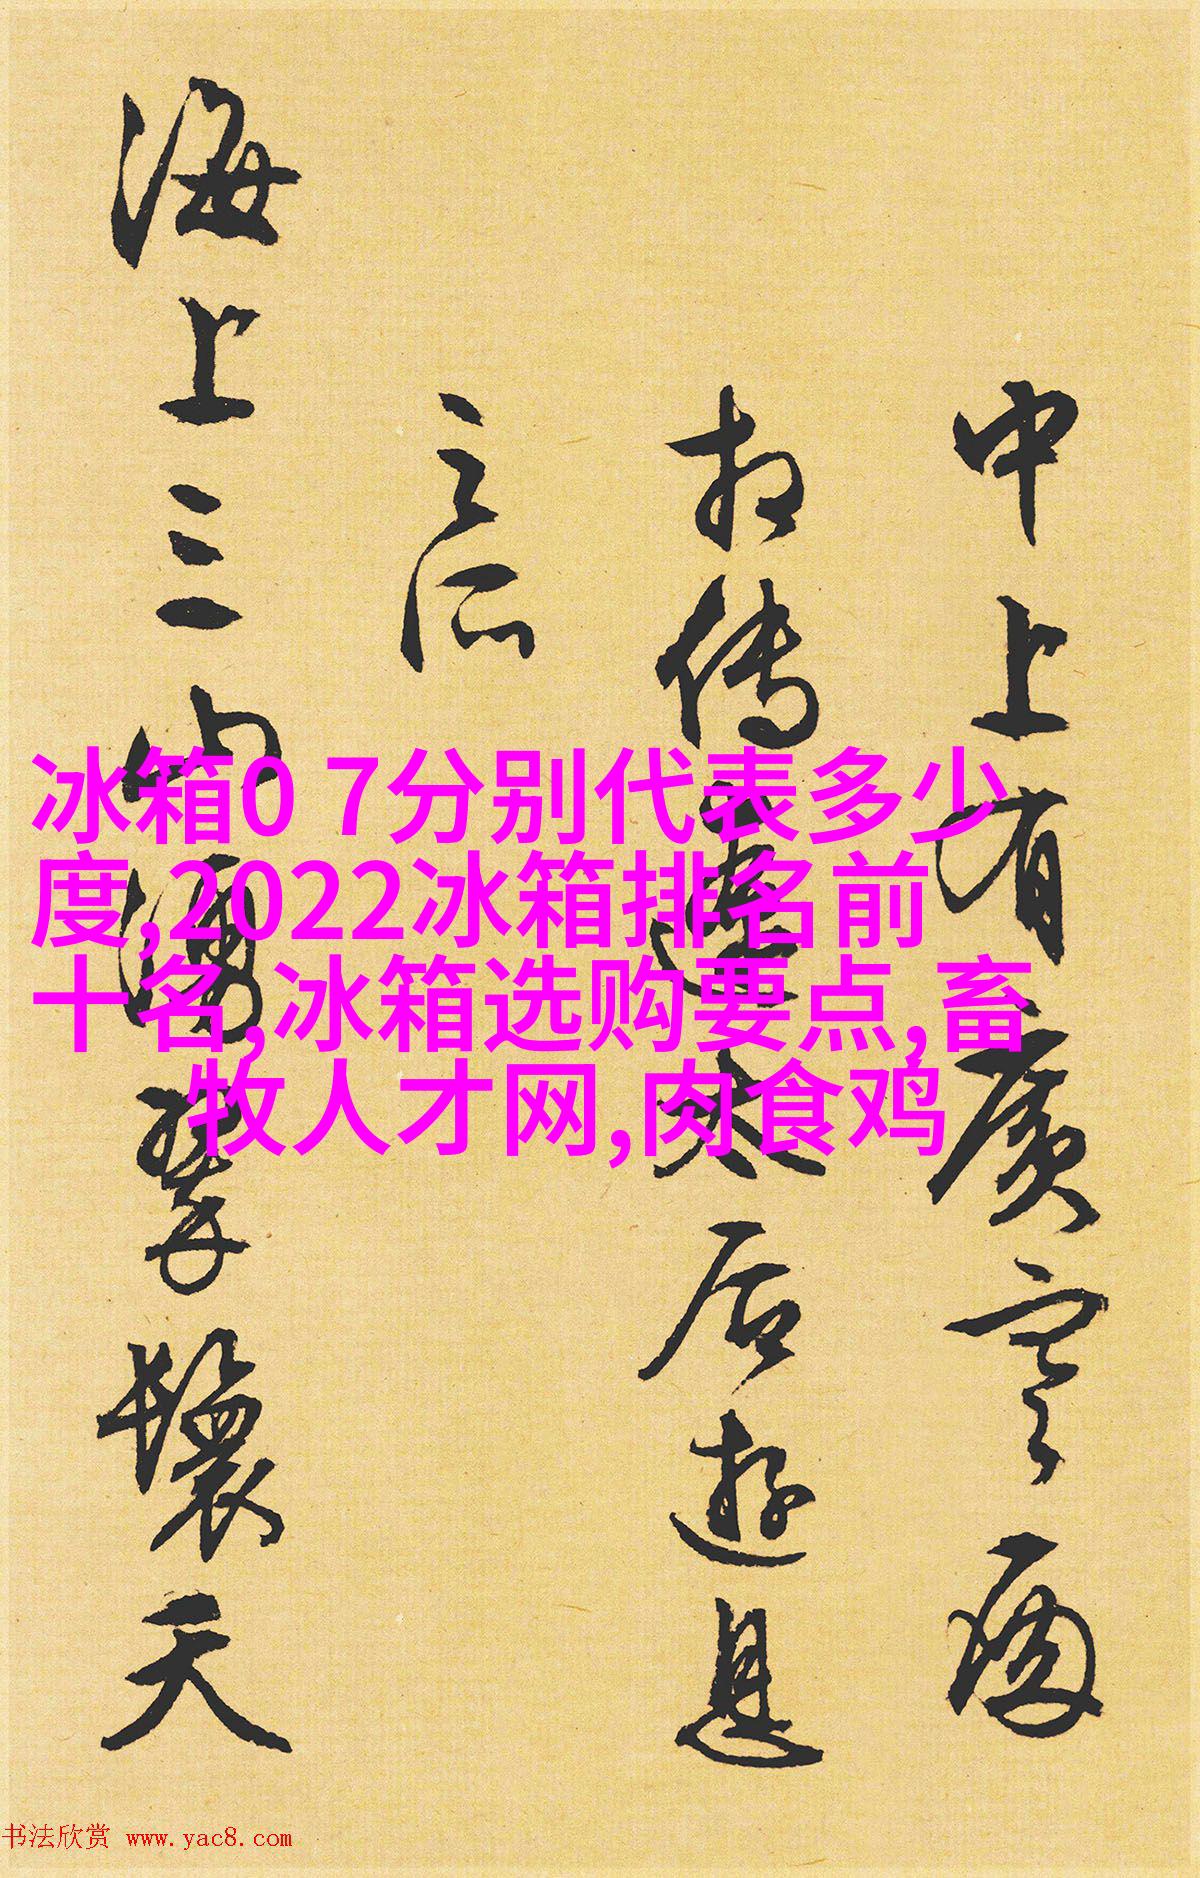 中上有广寒两
相传辽太后游息
之所
海上三山涌翠鬟天
冰箱0 7分别代表多少
度,2022冰箱排名前
十名,冰箱选购要点,畜
牧人才网,肉食鸡
书法欣赏 www.yac8.com